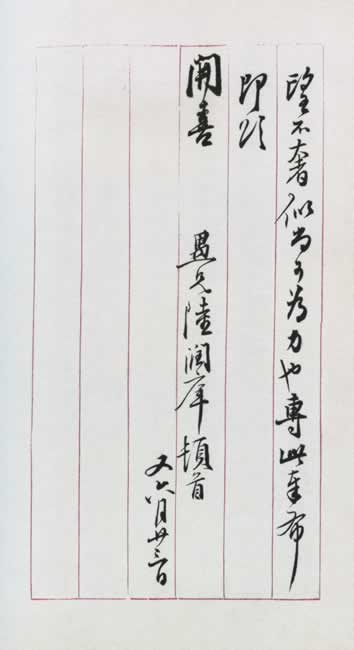 望不奢似尚可為力也專此奉布
即頌
開善
愚兄陸潤庠頓首
又六月廿三日